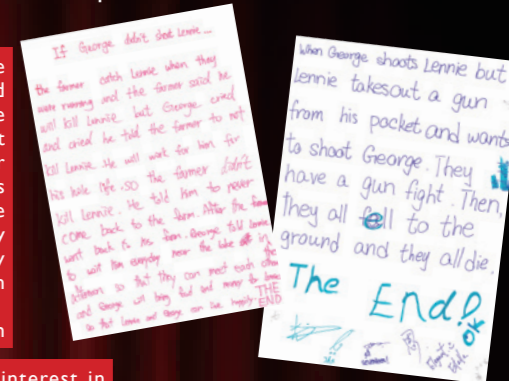 If George didn't shot Lennie ...
the farmer catch Lennie when they
were running and the farmer said he
will kill Lennie. but George cried
and cried he told the farmer to not
kill Lennie. He will work for him for
his hole life. so the farmer didn't
kill Lennie. He told him to never
come back to the farm. After the farmer
went back to his farm. George told Lennie
to wait him everyday near the lake at in
afternoon so that they can meet each other
and George will bring food and money for Lennie
so that Lennie and George can live happily
THE
END
When George shoots Lennie but
Lennie takes out a gun
from his pocket and wants
to shoot George. They
have a gun fight. Then,
they all fell to the
ground and they all die.
The End!
interest in